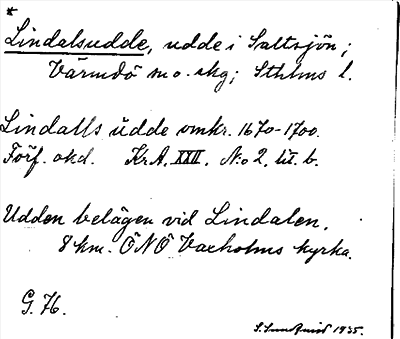 *
Lindalsudde, udde i Saltsjön;
Värmdö m. o. skg; Sthlms l.
Lindalls udde omkr. 1670-1700.
Förf. okd. Kr.A. XXII. No 2, lit. b.
Udden belägen vid Lindalen,
8 km. ÖNÖ Vaxholms kyrka.
G. 76.
S. Sundquist 1935.